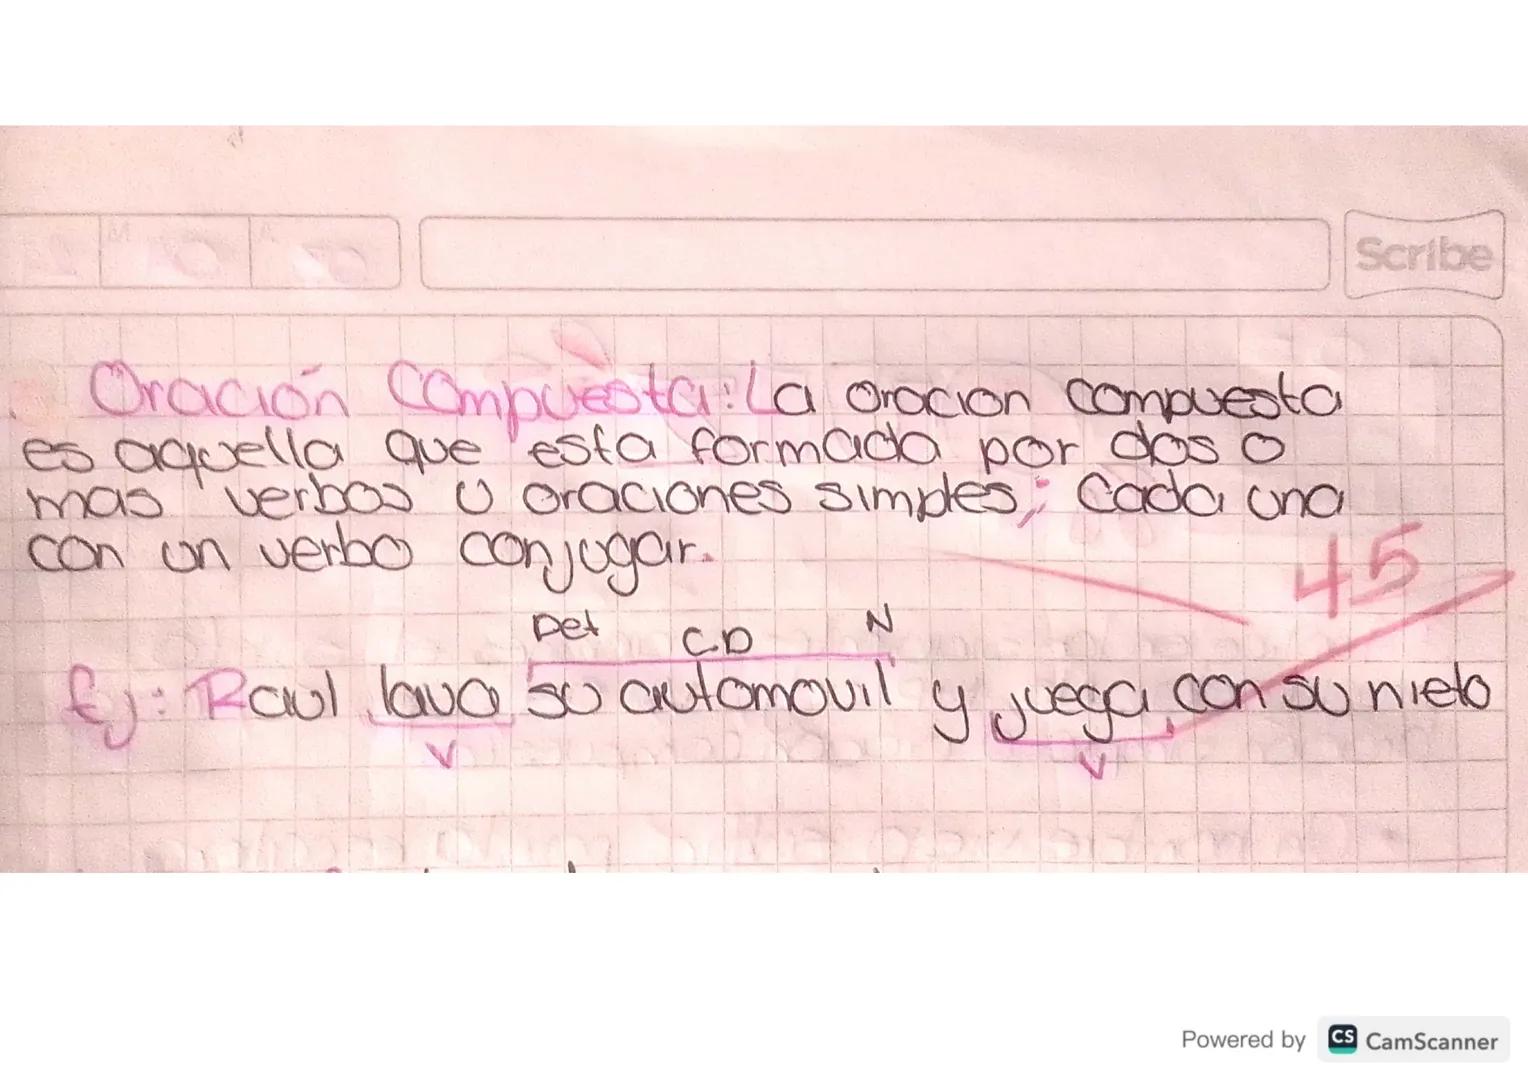 Scribe
Oración Compuesta: La oracion compuesta
es aquella que esta formada por dos o
mas verbos u oraciones simples; Cada una
con un verbo conjugar.
45
Det C.D N
Ej: Raul lava su automovil y juega con su nieto
V V
Powered by CS CamScanner